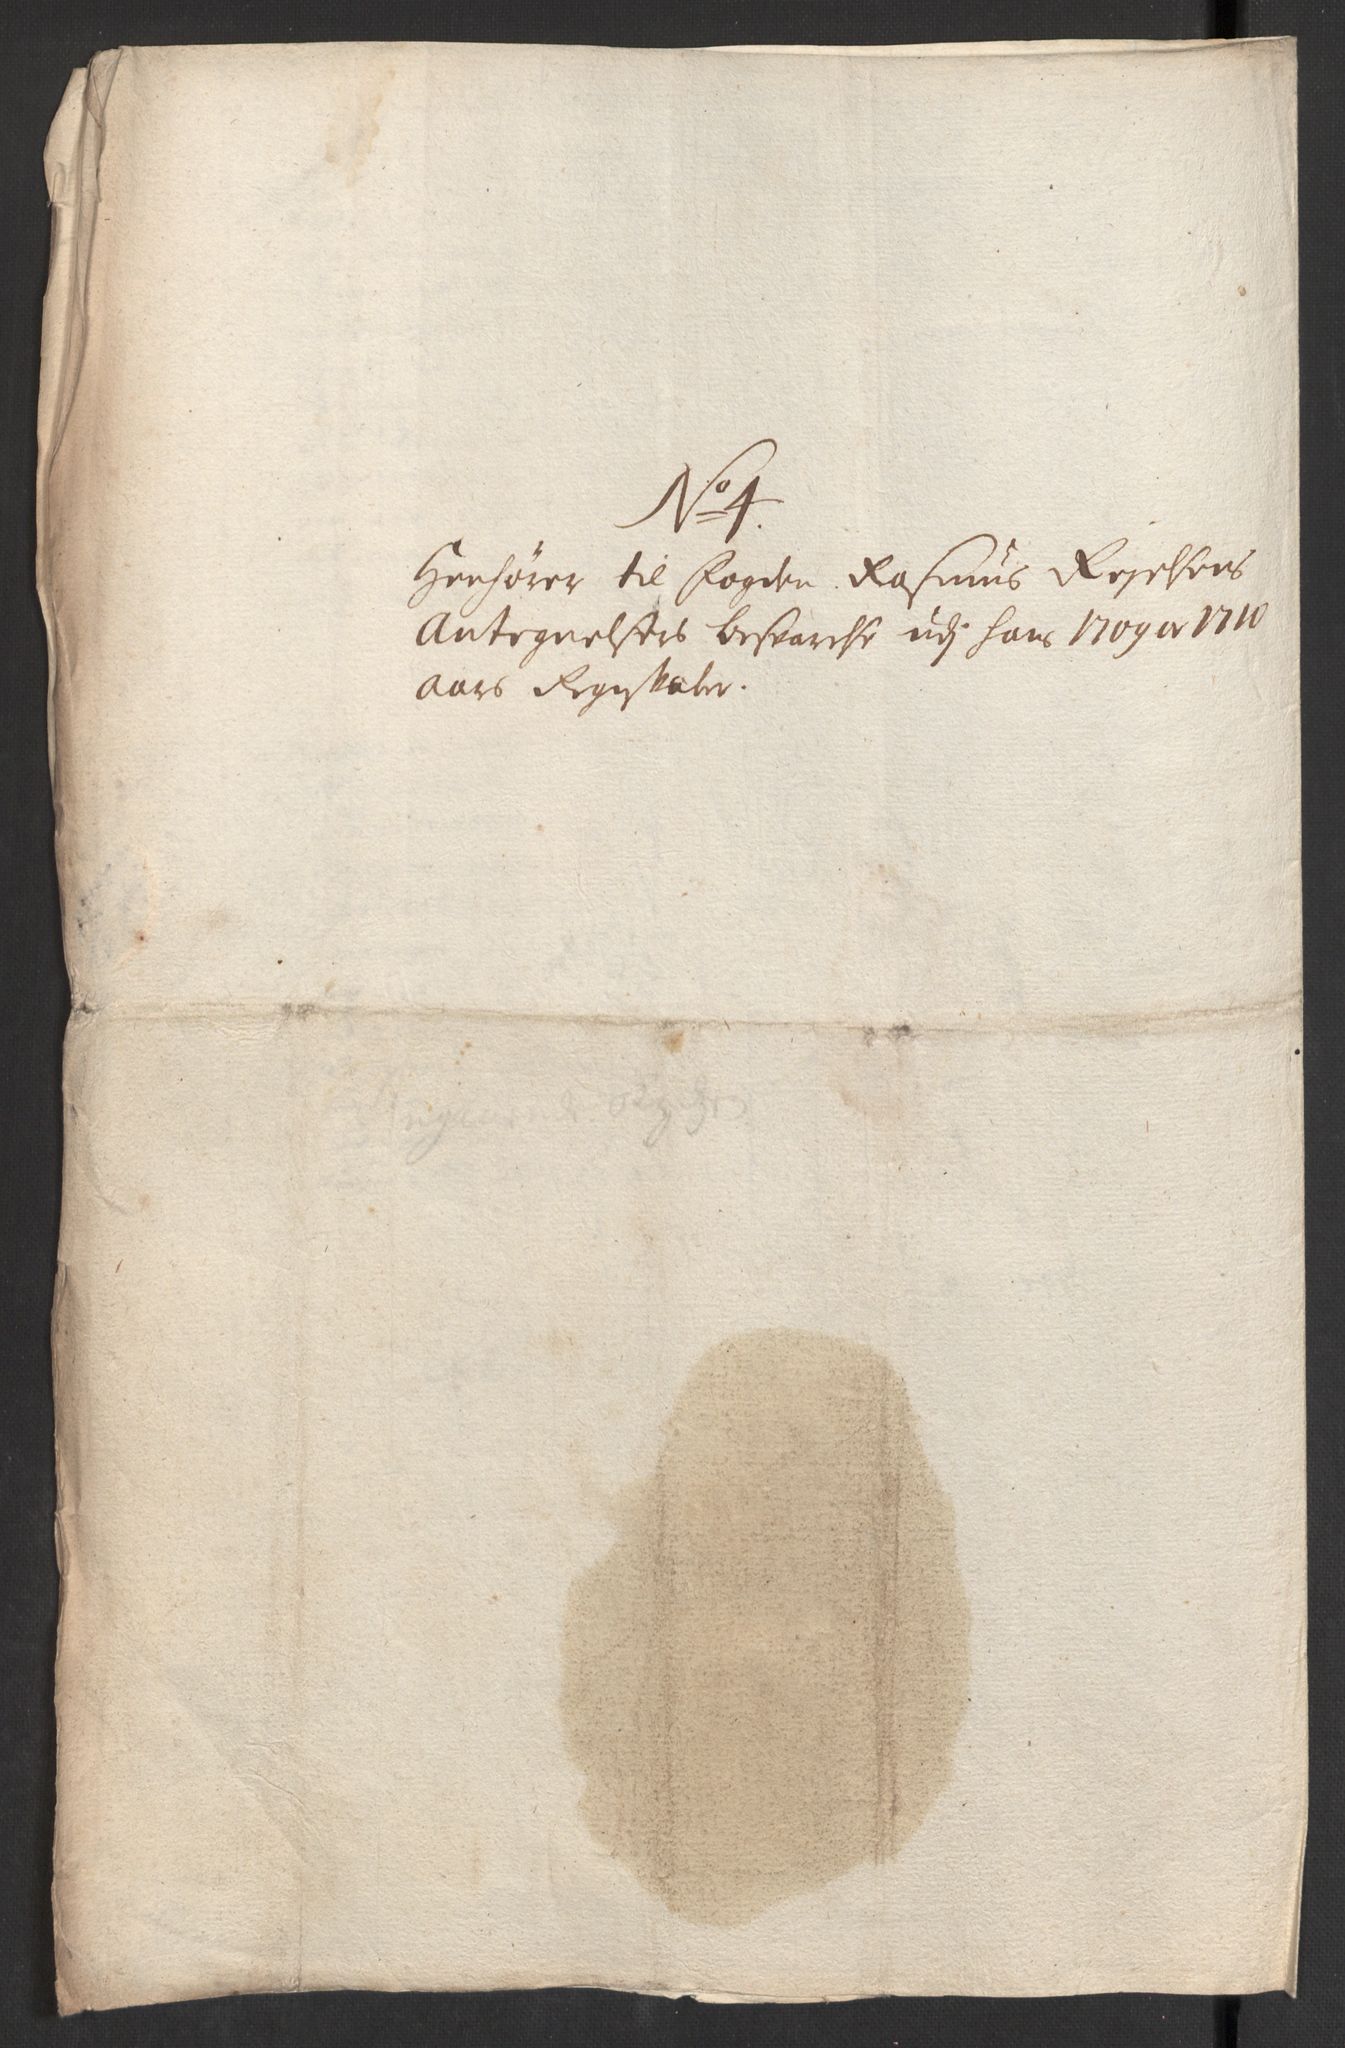 No 4.
Henhörer til Fogden Rasmus
Antegnelsers besvarelse udj hans 1709 og 1710
aars Regnskaber.